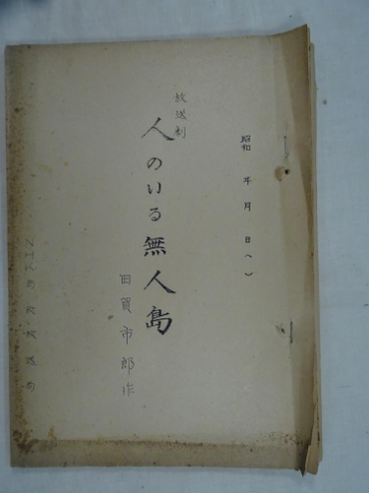 昭和 年 月 日( )
放送劇
人のいる無人島
田賀市郎作